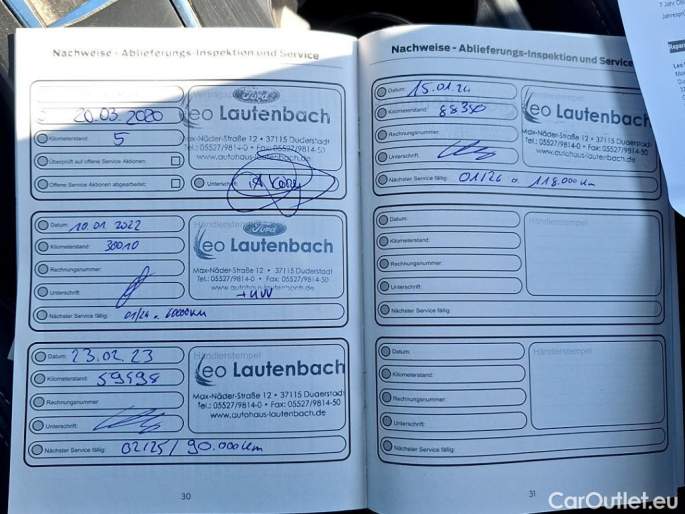 Nachweise - Ablieferungs-Inspektion und Service
20.03.2020
Kilometerstand: 5
Überprüft auf offene Service Aktionen:
Offene Service Aktionen abgearbeitet:
Ford
Leo Lautenbach
Max-Näder-Straße 12 • 37115 Duderstadt
Tel.: 05527/9814-0 • Fax: 05527/9814-50
www.autohaus-lautenbach.de
Unterschrift:
Datum: 10.01.2022
Kilometerstand: 30010
Rechnungsnummer:
Unterschrift:
Nächster Service fällig: 01/24 o. 60000 km
Händlerstempel
Ford
Leo Lautenbach
Max-Näder-Straße 12 • 37115 Duderstadt
Tel.: 05527/9814-0 • Fax: 05527/9814-50
www.autohaus-lautenbach.de
Datum: 23.02.23
Kilometerstand: 59598
Rechnungsnummer:
Unterschrift:
Nächster Service fällig: 02/25 / 90.000 km
Händlerstempel
Leo Lautenbach
Max-Näder-Straße 12 • 37115 Duderstadt
Tel.: 05527/9814-0 • Fax: 05527/9814-50
www.autohaus-lautenbach.de
30
Nachweise - Ablieferungs-Inspektion und Service
Datum: 15.01.24
Kilometerstand: 88350
Rechnungsnummer:
Unterschrift:
Nächster Service fällig: 01/26 o. 118.000 km
Leo Lautenbach
Max-Näder-Straße 12 • 37115 Duderstadt
Tel.: 05527/9814-0 • Fax: 05527/9814-50
www.autohaus-lautenbach.de
Datum:
Kilometerstand:
Rechnungsnummer:
Unterschrift:
Nächster Service fällig:
Händlerstempel
Datum:
Kilometerstand:
Rechnungsnummer:
Unterschrift:
Nächster Service fällig:
Händlerstempel
31
CarOutlet.eu